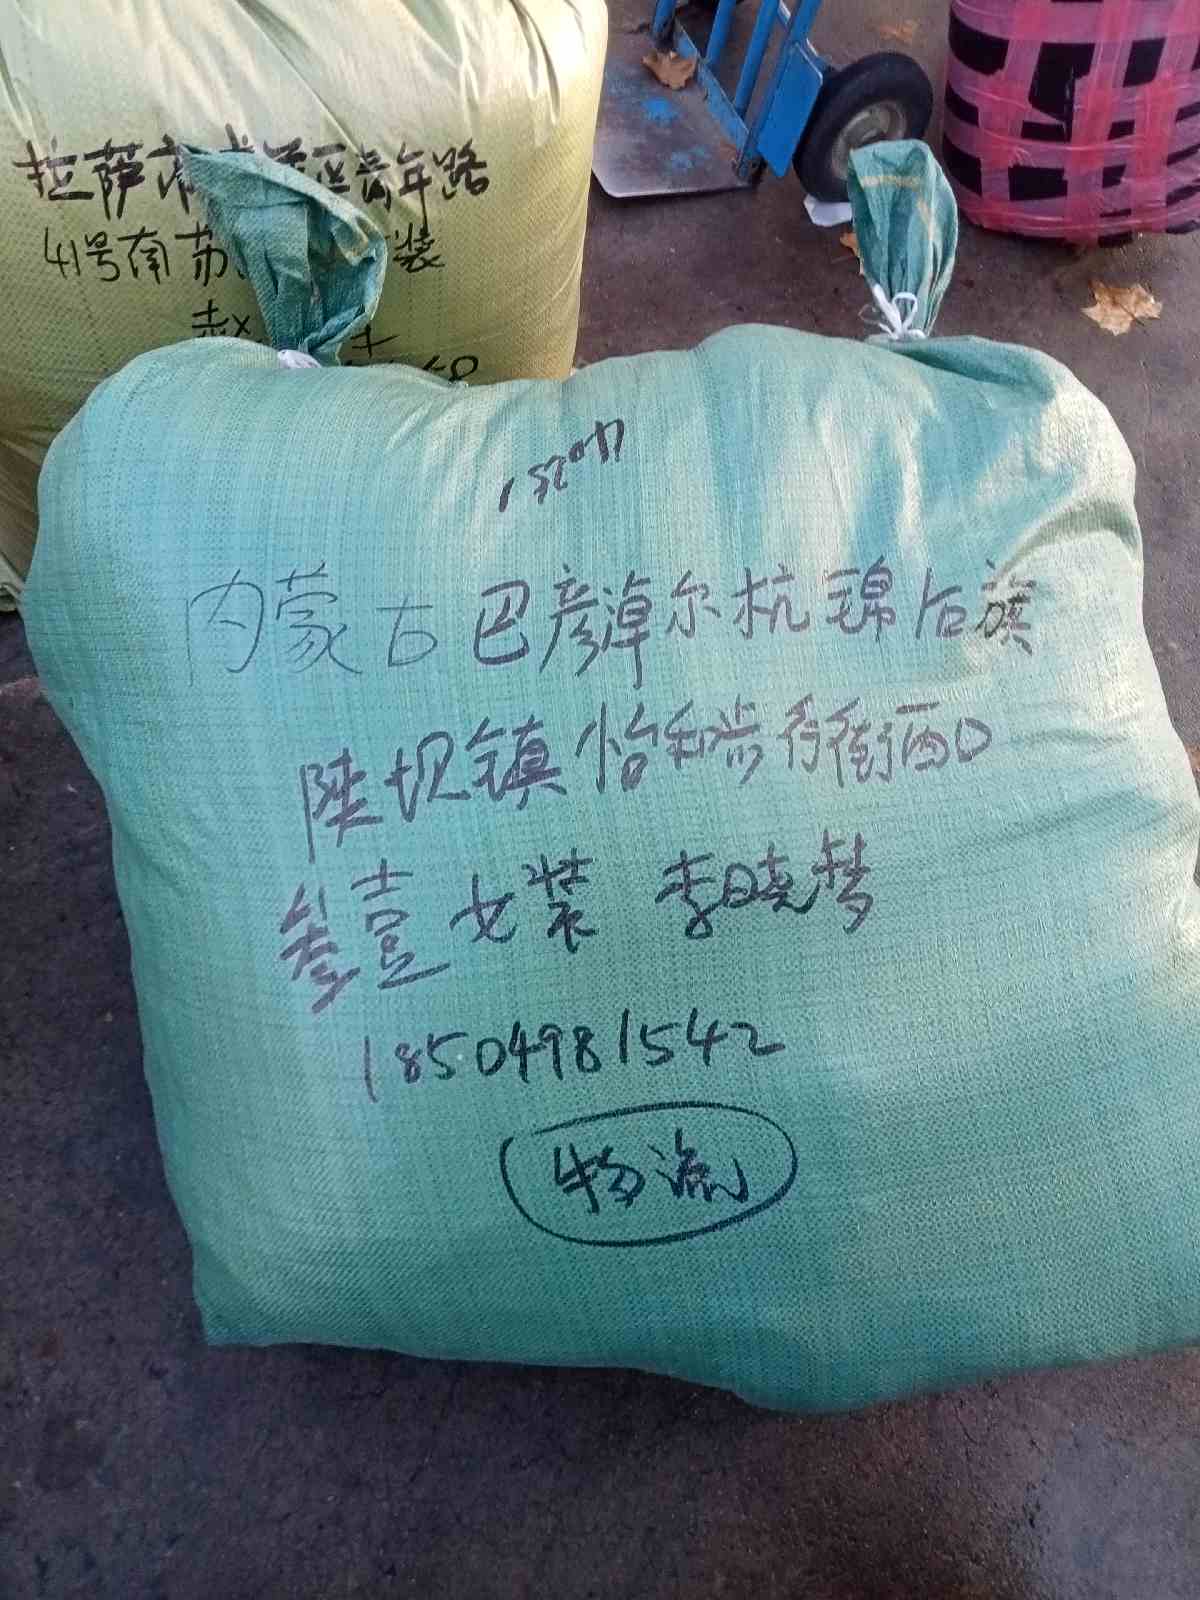 拉萨市
区青年路
41号南苏
装
赵
内蒙古巴彦淖尔杭锦后旗
陕坝镇怡和步行街西口
叁壹女装 李晓梦
18504981542
物流